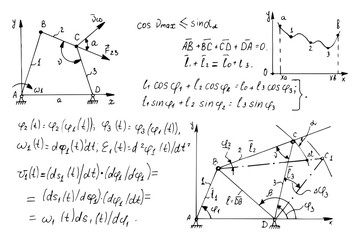 y
B
2
C
v̄C0
α
F̄23
v
1
3
A
ω1
a
D
x
cos υmax ≤ sin αα
A̅B̅ + B̅C̅ + C̅D̅ + D̅A̅ = 0.
l̄1 + l̄2 = l̄0 + l̄3.
l1 cos φ1 + l2 cos φ2 = l0 + l3 cos φ3;
l1 sin φ1 + l2 sin φ2 = l3 sin φ3
y
a
1
2
3
b
xa
xb
x
φ2(t) = φ2(φ1(t)); φ3(t) = φ3(φ1(t),
ω1(t) = dφ1(t)dt; ε1(t) = d²φ1(t)/dt²
v1(t) = (ds1/dt)·(dφ1/dt) =
= (ds1/dφ2)·(dφ1/dt) =
= ω1(t)ds1/dφ1.
y
C
α
φ2
2
l̄2
v
C1
B
1
l̄1
l=DB
l̄3
3
Δφ3
φ1
φ3
A
D
x